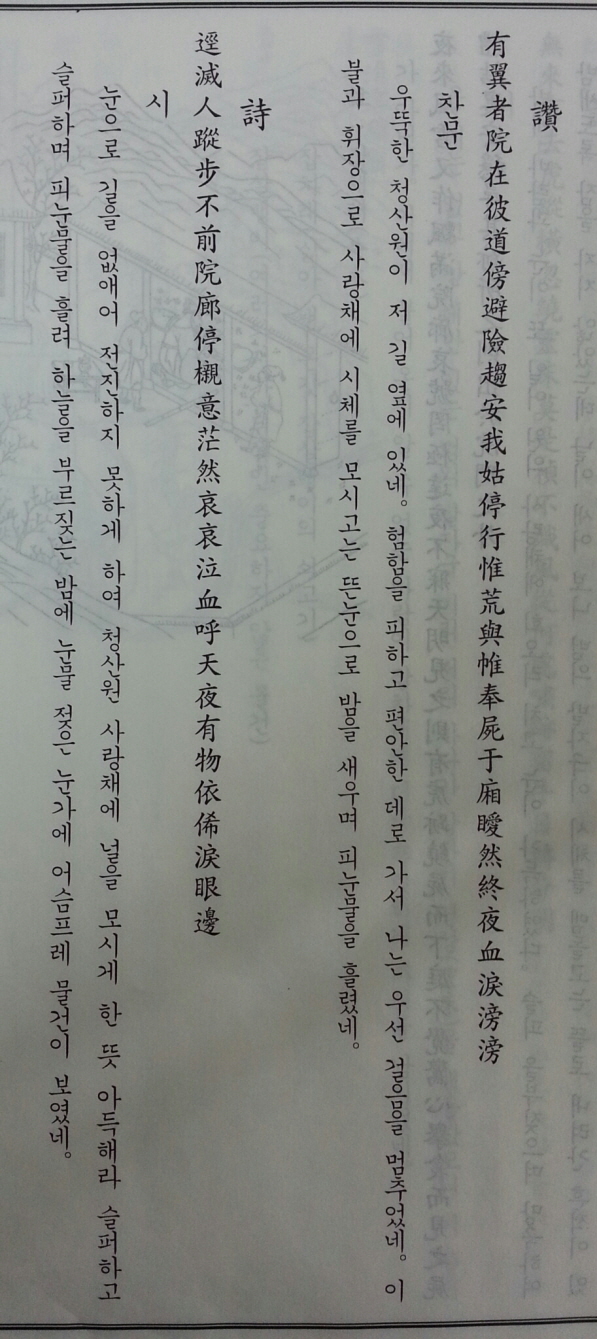 讚
有翼者院在彼道傍避險趨安我姑停行惟荒與帷奉屍于廂曖然終夜血淚滂滂
찬문
우뚝한 청산원이 저 길 옆에 있네。 험함을 피하고 편안한 데로 가서 나는 우선 걸음을 멈추었네。 이
불과 휘장으로 사랑채에 시체를 모시고는 뜬눈으로 밤을 새우며 피눈물을 흘렸네。
詩
逕滅人蹤步不前院廊停櫬意茫然哀哀泣血呼天夜有物依俙淚眼邊
시
눈으로 길을 없애어 전진하지 못하게 하여 청산원 사랑채에 널을 모시게 한 뜻 아득해라 슬퍼하고
슬퍼하며 피눈물을 흘려 하늘을 부르짖는 밤에 눈물 젖은 눈가에 어슴프레 물건이 보였네。